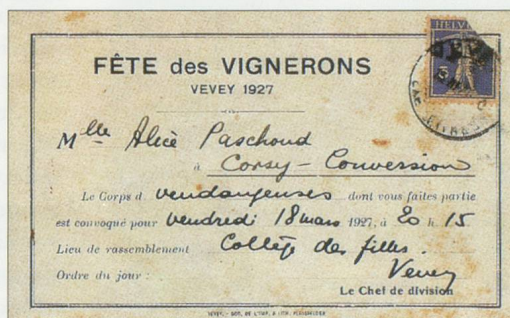 HELVE
FÊTE des VIGNERONS
VEVEY 1927
Mlle Alice Paschoud
à Corsy - Conversion
Le Corps d vendangeuses dont vous faites partie
est convoqué pour vendredi 18 mars 1927, à 20 h. 15
Lieu de rassemblement Collège des filles.
Ordre du jour : Vevey
Le Chef de division